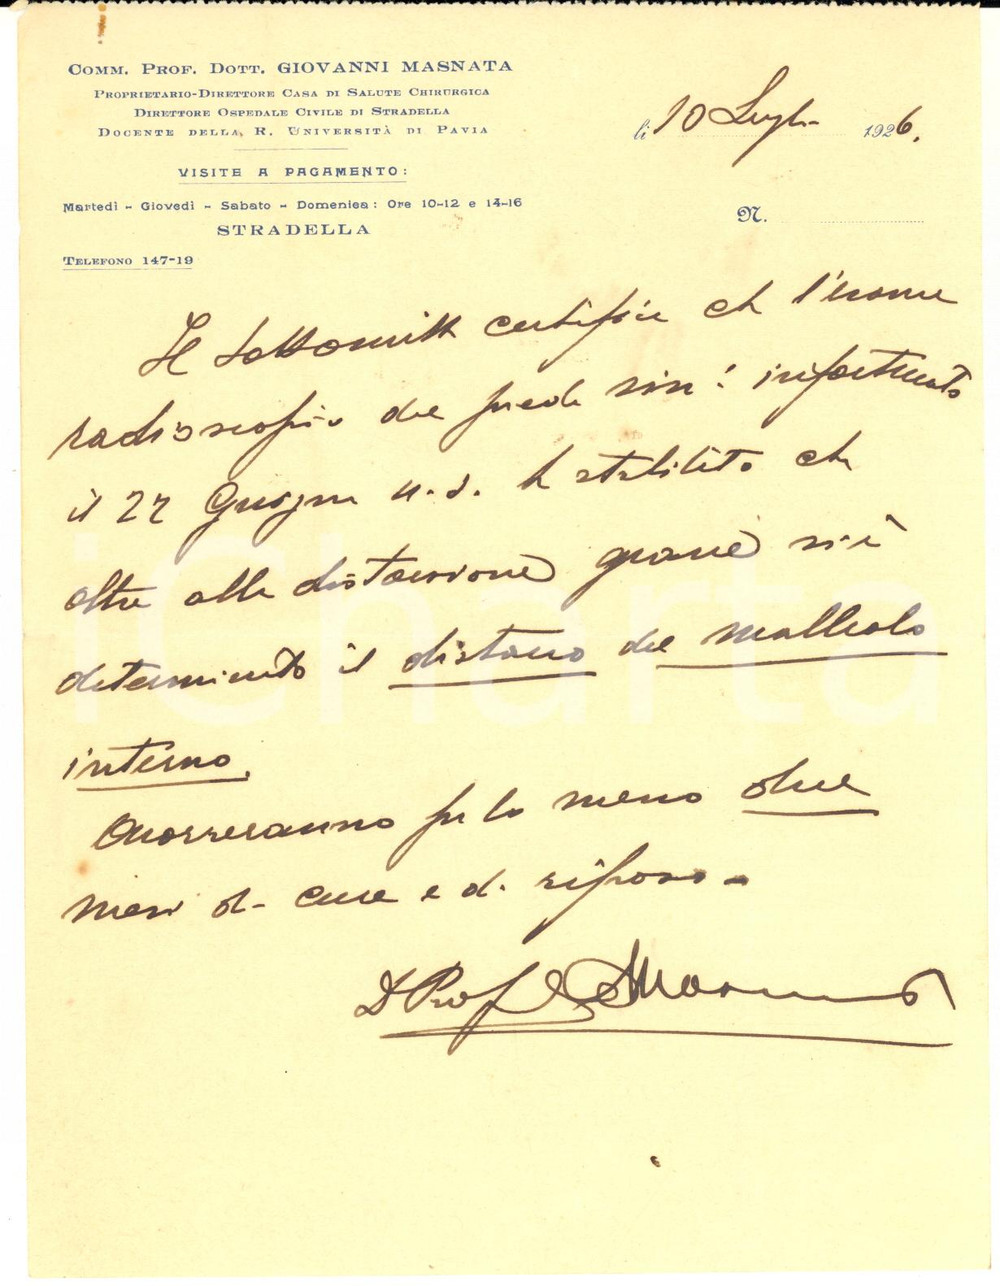 COMM. PROF. DOTT. GIOVANNI MASNATA
PROPRIETARIO-DIRETTORE CASA DI SALUTE CHIRURGICA
DIRETTORE OSPEDALE CIVILE DI STRADELLA
DOCENTE DELLA R. UNIVERSITÀ DI PAVIA
VISITE A PAGAMENTO:
Martedì - Giovedì - Sabato - Domenica: Ore 10-12 e 14-16
STRADELLA
TELEFONO 147-19
lì 10 Luglio 1926.
N.
Il sottoscritto certifica che l'esame
radioscopico del piede sin: infortunato
il 27 Giugno u.s. ha stabilito che
oltre alla distorsione grave si è
determinato il distacco del malleolo
interno.
Occorreranno per lo meno due
mesi di cure e di riposo.
D Prof G Masnata
iCharta